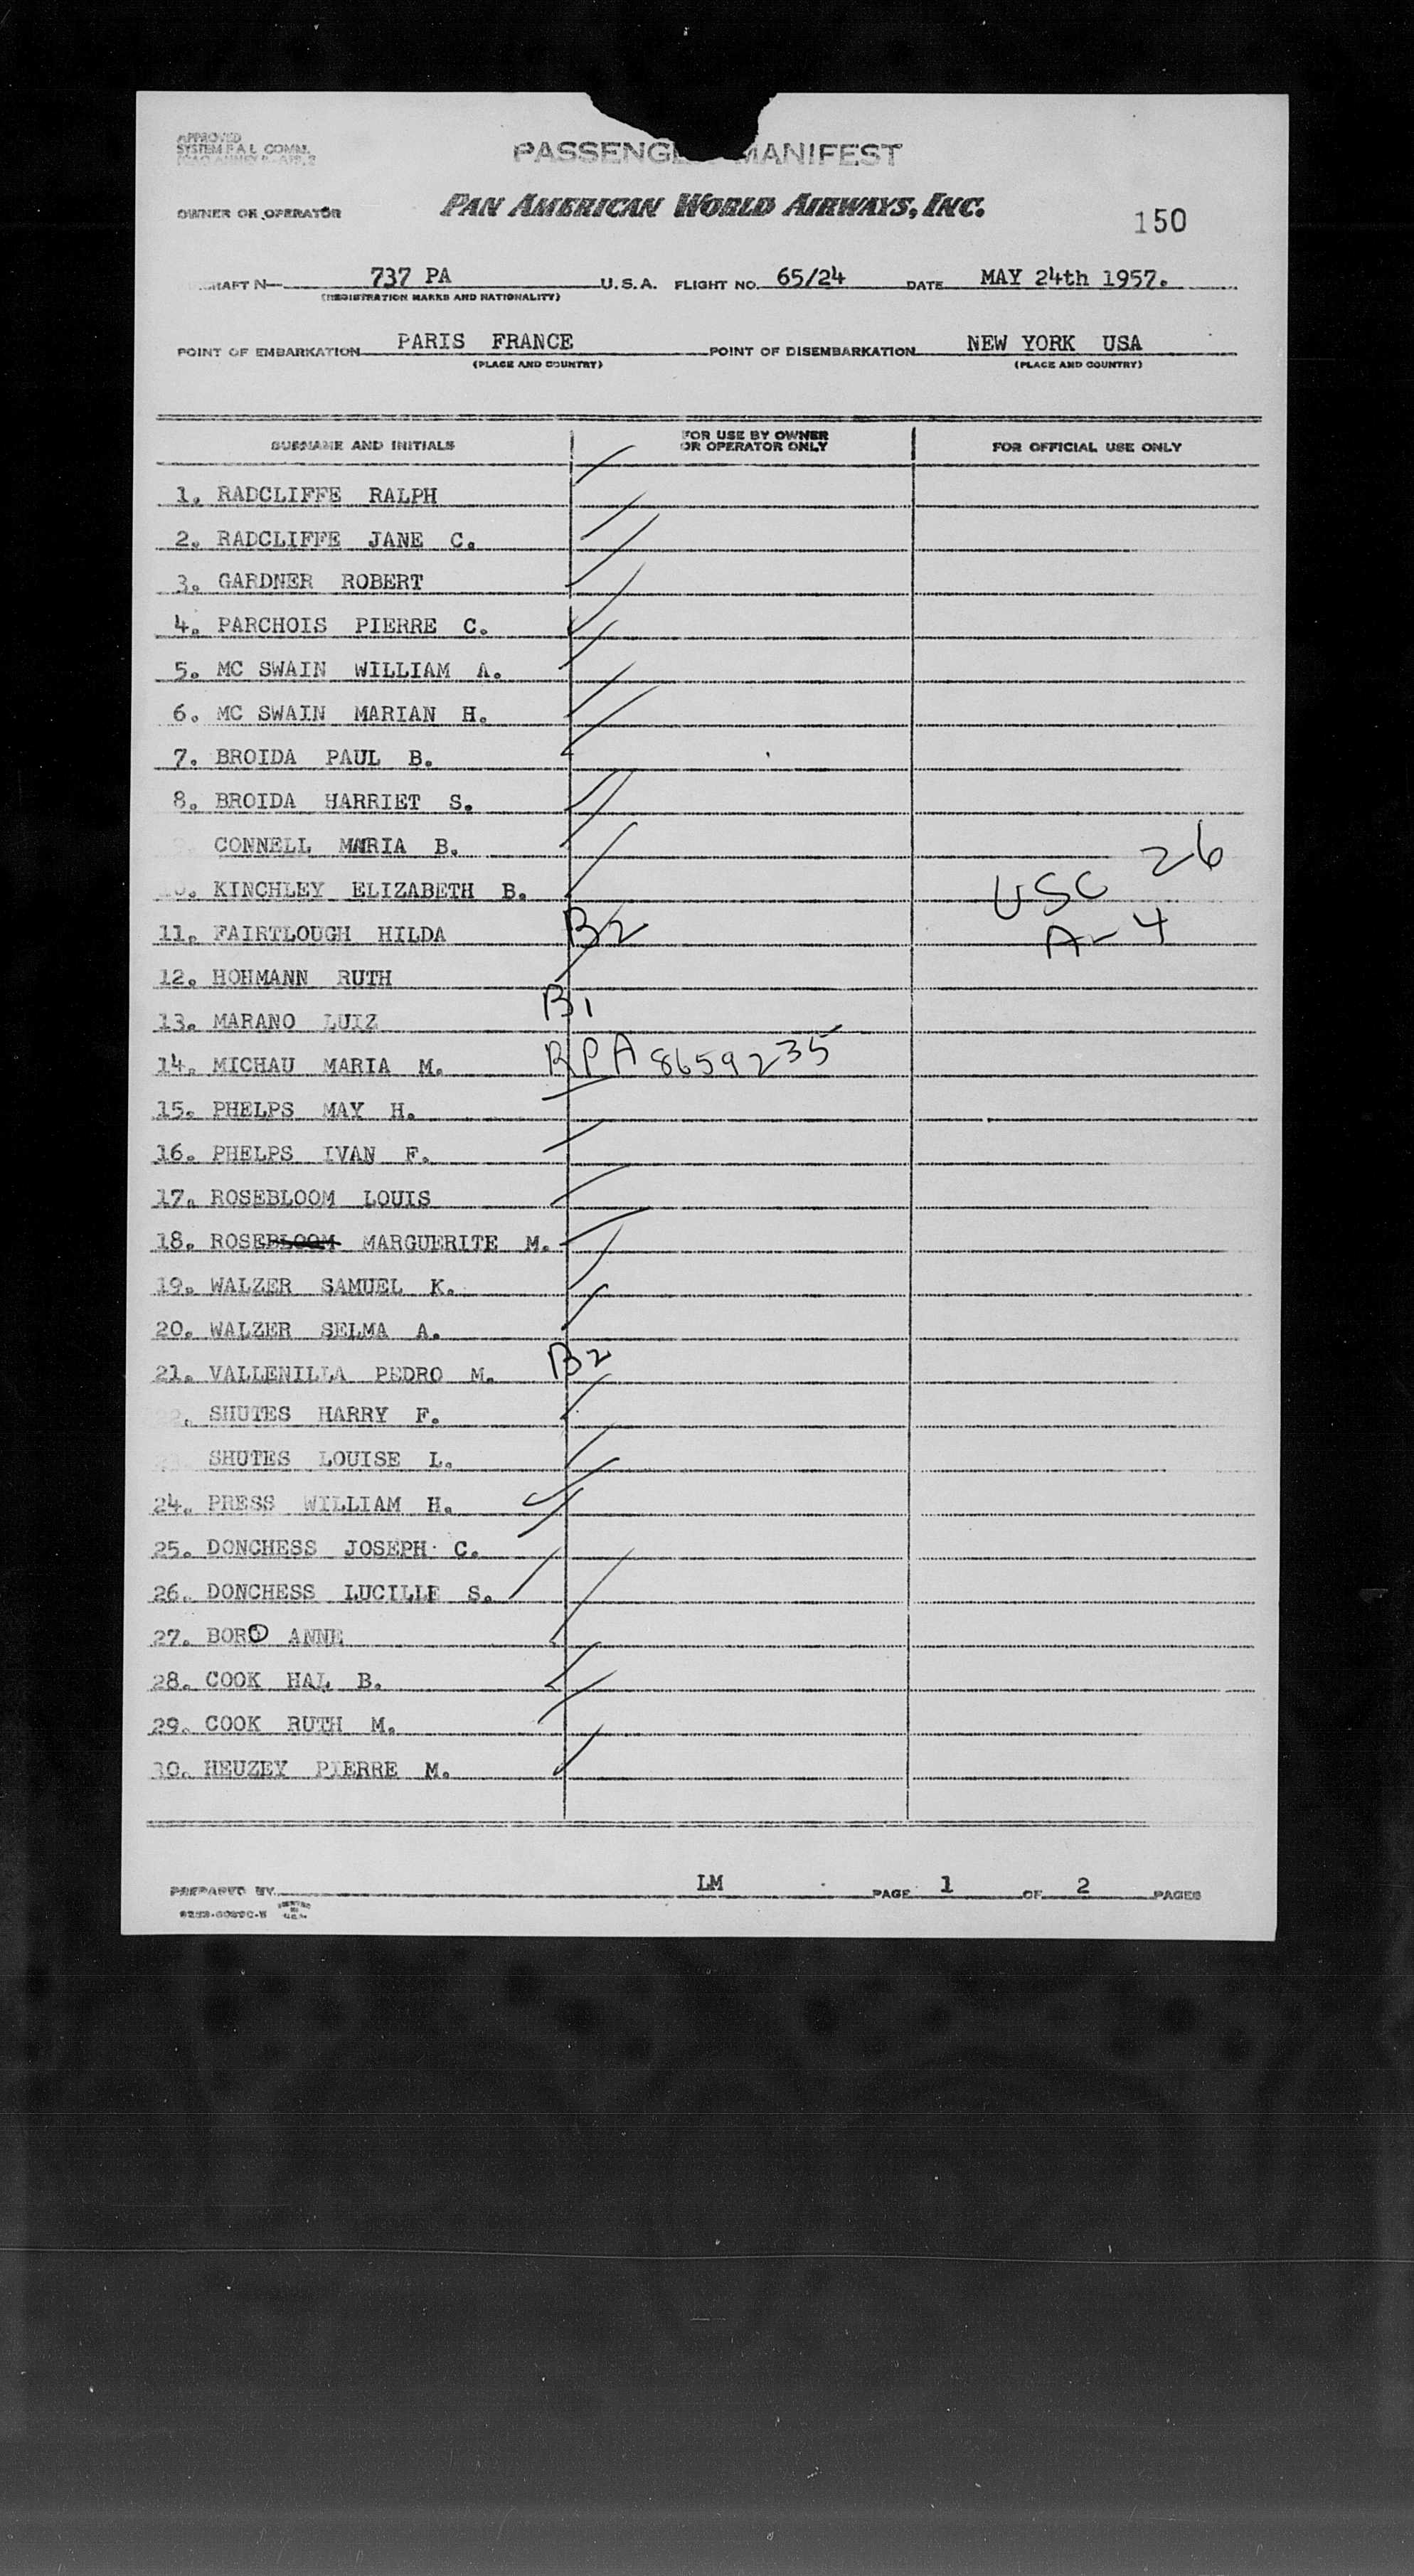 APPROVED
SYSTEM F A L COMM.
PASSENG MANIFEST
OWNER OR OPERATOR PAN AMERICAN WORLD AIRWAYS, INC.
150
RAFT N— 737 PA U.S.A. FLIGHT NO. 65/24 DATE MAY 24th 1957.
(REGISTRATION MARKS AND NATIONALITY)
POINT OF EMBARKATION PARIS FRANCE POINT OF DISEMBARKATION NEW YORK USA
(PLACE AND COUNTRY) (PLACE AND COUNTRY)
SURNAME AND INITIALS FOR USE BY OWNER OR OPERATOR ONLY FOR OFFICIAL USE ONLY
1. RADCLIFFE RALPH
2. RADCLIFFE JANE C.
3. GARDNER ROBERT
4. PARCHOIS PIERRE C.
5. MC SWAIN WILLIAM A.
6. MC SWAIN MARIAN H.
7. BROIDA PAUL B.
8. BROIDA HARRIET S.
9. CONNELL MARIA B. 26
0. KINCHLEY ELIZABETH B. USC
11. FAIRTLOUGH HILDA B2 A- 4
12. HOHMANN RUTH
13. MARANO LUIZ B1
14. MICHAU MARIA M. RPA 8659235
15. PHELPS MAY H.
16. PHELPS IVAN F.
17. ROSEBLOOM LOUIS
18. ROSEBLOOM MARGUERITE M.
19. WALZER SAMUEL K.
20. WALZER SELMA A.
21. VALLENILLA PEDRO M. B2
22. SHUTES HARRY F.
23. SHUTES LOUISE L.
24. PRESS WILLIAM H.
25. DONCHESS JOSEPH C.
26. DONCHESS LUCILLE S.
27. BORO ANNE
28. COOK HAL B.
29. COOK RUTH M.
30. HEUZEY PIERRE M.
PREPARED BY LM PAGE 1 OF 2 PAGES